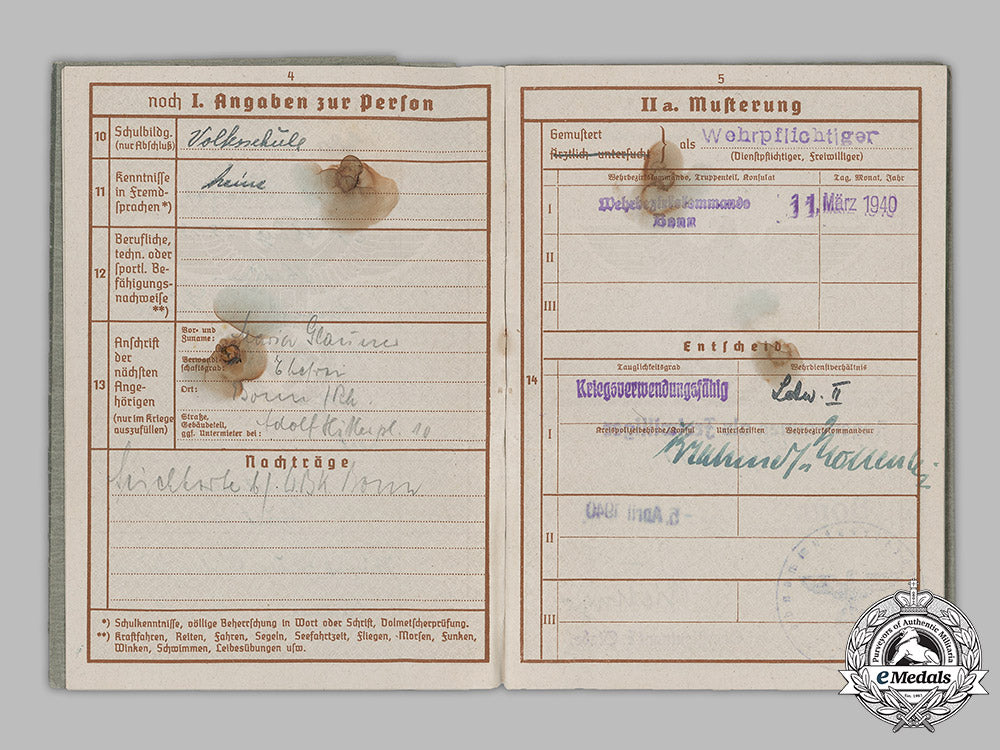 4
noch I. Angaben zur Person
10 Schulbildg. (nur Abschluß) Volksschule
11 Kenntnisse in Fremdsprachen *) keine
12 Berufliche, techn. oder sportl. Befähigungsnachweise **)
13 Anschrift der nächsten Angehörigen (nur im Kriege auszufüllen)
Vor- und Zuname: Maria
Verwandtschaftsgrad: Ehefrau
Ort: Bonn /Rh
Straße, Gebäudeteil, ggf. Untermieter bei: Adolf Hitlerpl. 10
Nachträge
WBK Bonn
*) Schulkenntnisse, völlige Beherrschung in Wort oder Schrift, Dolmetscherprüfung.
**) Kraftfahren, Reiten, Fahren, Segeln, Seefahrtzeit, Fliegen, Morsen, Funken,
Winken, Schwimmen, Leibesübungen usw.
5
II a. Musterung
Gemustert
ärztlich untersucht } als Wehrpflichtiger
(Dienstpflichtiger, Freiwilliger)
Wehrbezirkskommando, Truppenteil, Konsulat Tag, Monat, Jahr
I Wehrbezirkskommando Bonn 11. März 1940
II
III
Entscheid
14
Tauglichkeitsgrad Wehrdienstverhältnis
Kriegsverwendungsfähig Ldw. II
I Kreispolizeibehörde/Konsul Unterschriften Wehrbezirkskommandeur
5. April 1940
II
III
Purveyors of Authentic Militaria
eMedals
Est. 1967